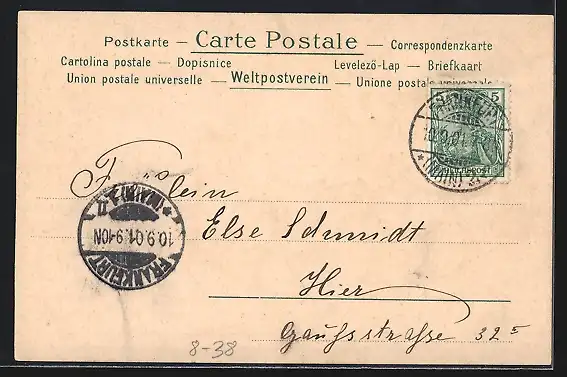 Postkarte — Carte Postale — Correspondenzkarte
Cartolina postale — Dopisnice Levelező-Lap — Briefkaart
Union postale universelle — Weltpostverein — Unione postale universale
5
FRANKFURT
10.9.01
(MAIN)
REICHSPOST
Fräulein
Else Schmidt
Hier
Gaußstraße 32
(MAIN)
10.9.01.9-10N
FRANKFURT
8-38